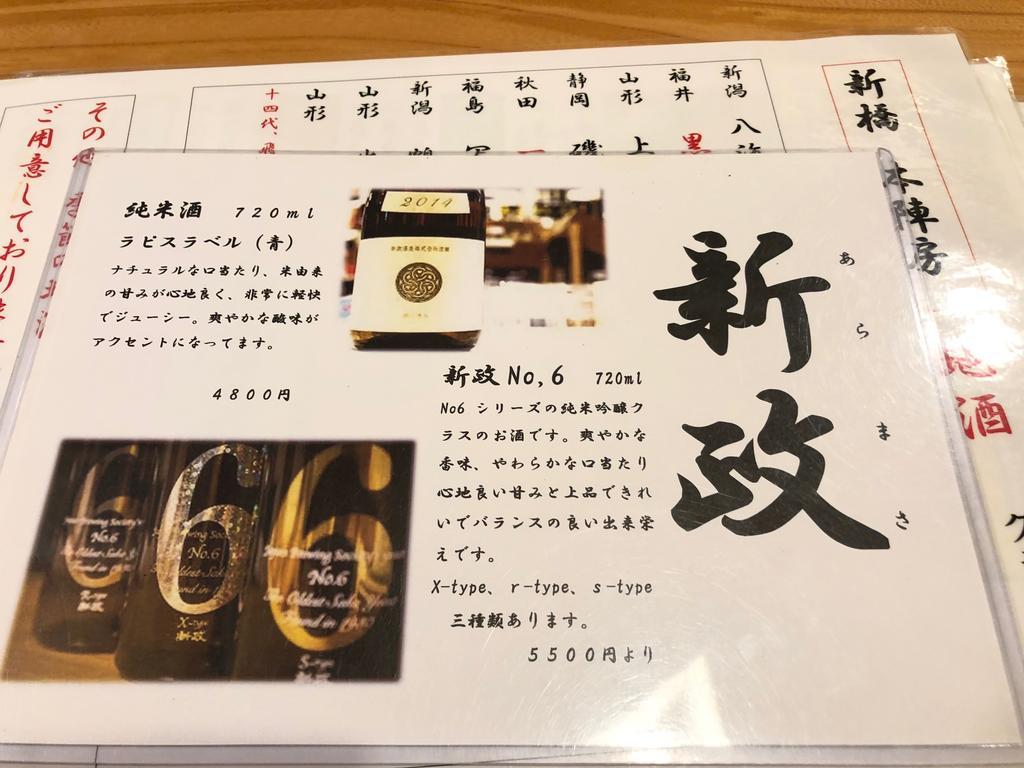 新橋 本陣房
地酒
新潟 八海
福井 黒
山形 上
静岡 磯
秋田
福島
新潟
山形
山形
十四代、飛
ご用意しており
新政
あらまさ
純米酒 720ml
ラピスラベル（青）
ナチュラルな口当たり、米由来
の甘みが心地良く、非常に軽快
でジューシー。爽やかな酸味が
アクセントになってます。
4800円
2014
新政No,6 720ml
No6 シリーズの純米吟醸ク
ラスのお酒です。爽やかな
香味、やわらかな口当たり
心地良い甘みと上品できれ
いでバランスの良い出来栄
えです。
X-type、r-type、s-type
三種類あります。
5500円より
6
No.6
The Oldest Sake
Found in 1930
X-type
新政
6
No.6
The Oldest Sake Yeast
Found in 1930
S-type
新政